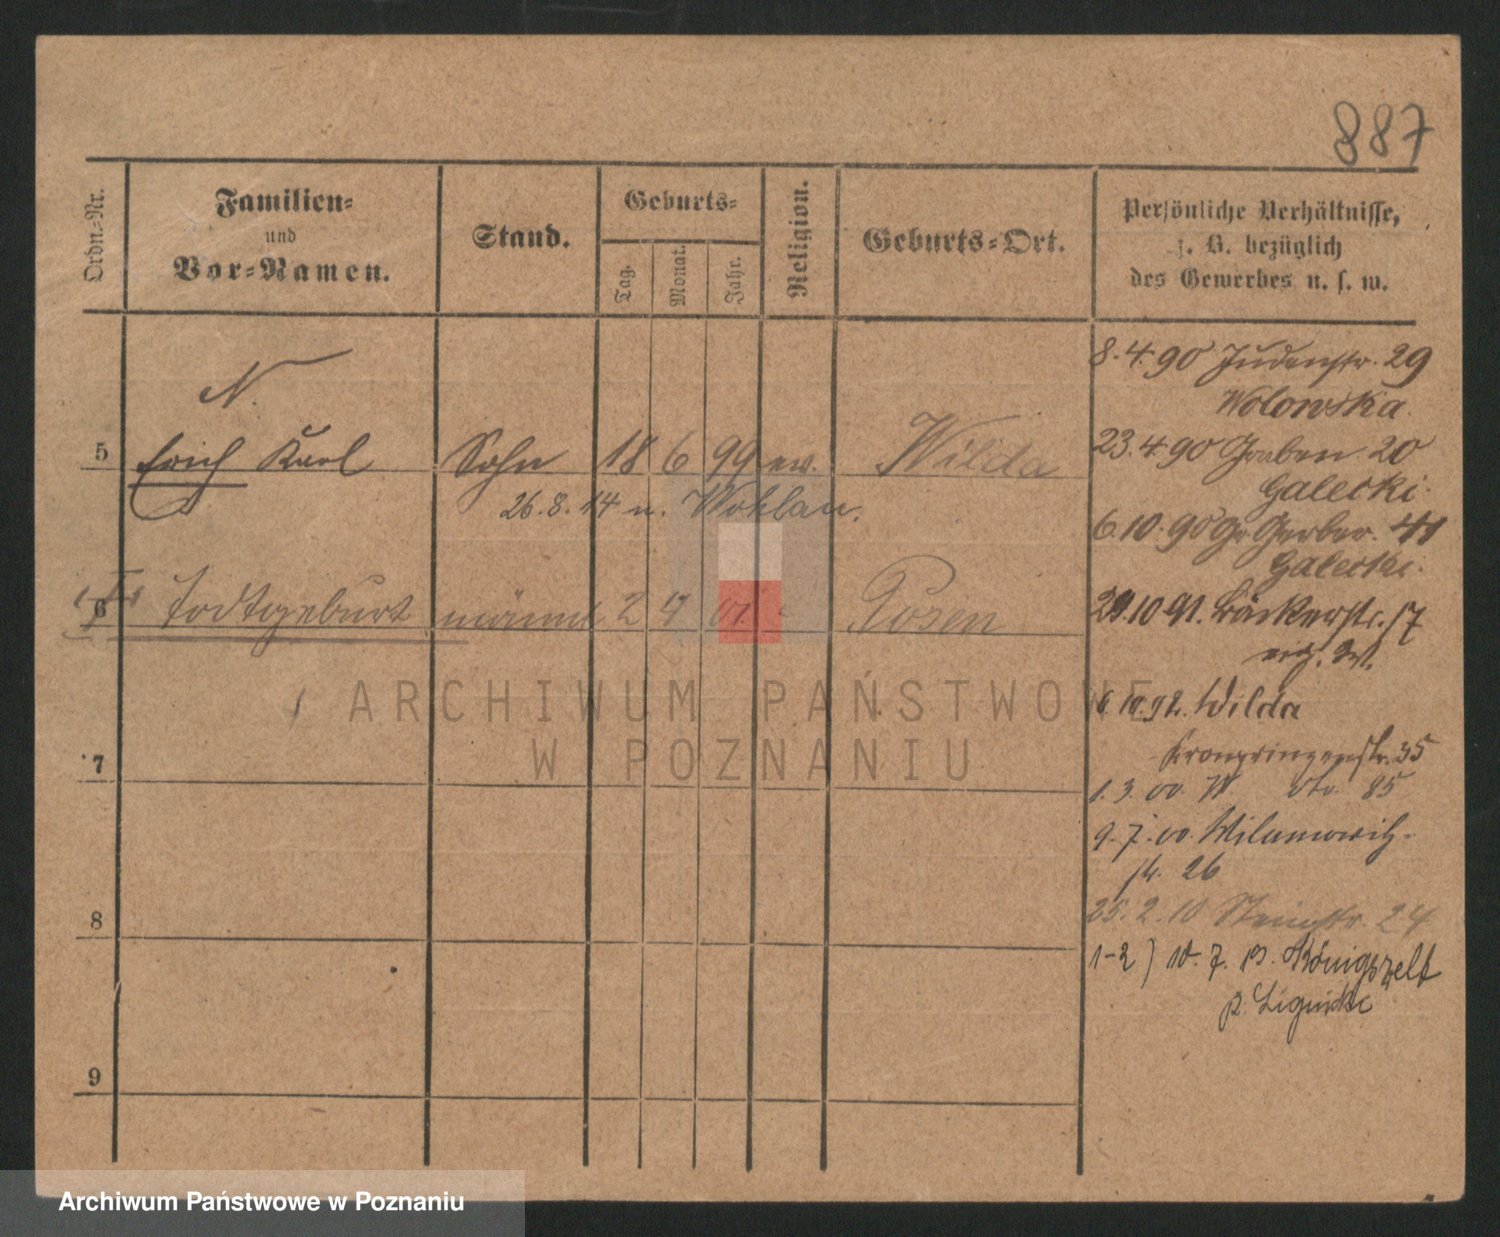 887
Ordn.-Nr.
Familien-
und
Vor-Namen.
Stand.
Geburts-
Tag.
Monat.
Jahr.
Religion.
Geburts-Ort.
Persönliche Verhältnisse,
z. B. bezüglich
des Gewerbes u. s. w.
N.
5 Erich Karl Sohn 18 6 99 ev. Wilda
26.8.14 n. Wohlau.
6 Todtgeburt männl 2 4 01. Posen
7
8
9
8.4.90 Judenstr. 29
Wolowska.
23.4.90 Graben 20
Galecki.
6.10.90 Gr Gerber. 41
Galecki.
29.10 91. Bäckerstr. 17
6 10.92. Wilda
Kronprinzenstr. 35
1.3.00. W. dto 85
9.7.00. Wilamowitz-
str. 26
25.2.10 Steinstr. 24
1-2) 10.7.13. Königszelt
p. Liegnitz
ARCHIWUM PAŃSTWOWE
W POZNANIU
Archiwum Państwowe w Poznaniu